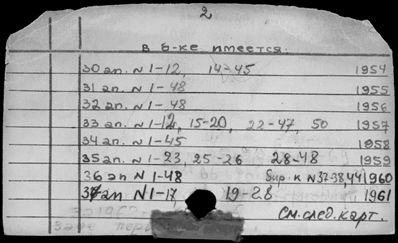 2
в б-ке имеется:
30 эл. N 1-12, 14-45 1954
31 эл. N 1-48 1955
32 эл. N 1-48 1956
33 эл. N 1-12, 15-20, 22-47, 50 1957
34 эл. N 1-45 1958
35 эл. N 1-23, 25-26 28-48 1959
36 эл N 1-48 Бир. к N 37-38,44 1960
37 эл N 1-17 19-28 1961
См. след. карт.